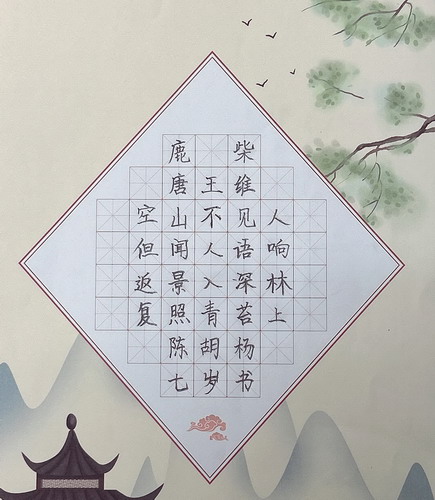 鹿柴
唐王维
空山不见人
但闻人语响
返景入深林
复照青苔上
陈胡杨
七岁书